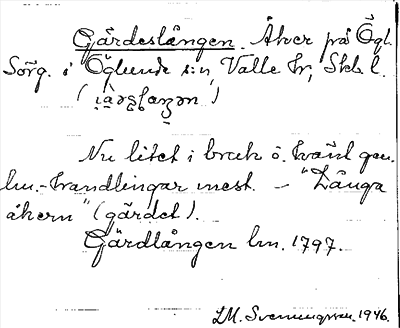 Gärdeslången. Åker på Ögl.
Sörg. i Öglunda s:n, Valle hr, Skb. l.
Nu litet i bruk o. känt gen.
lm.-handlingar mest. - "Långa
åkern" (gärdet).
Gärdlången lm. 1797.
LM. Svenungsson. 1946.